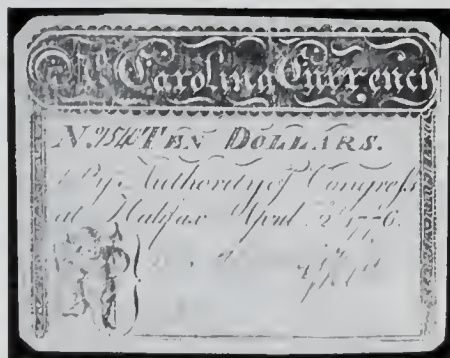 No. Carolina Currency
No. 9540 TEN DOLLARS.
By Authority of Congress
at Halifax April 2d 1776.